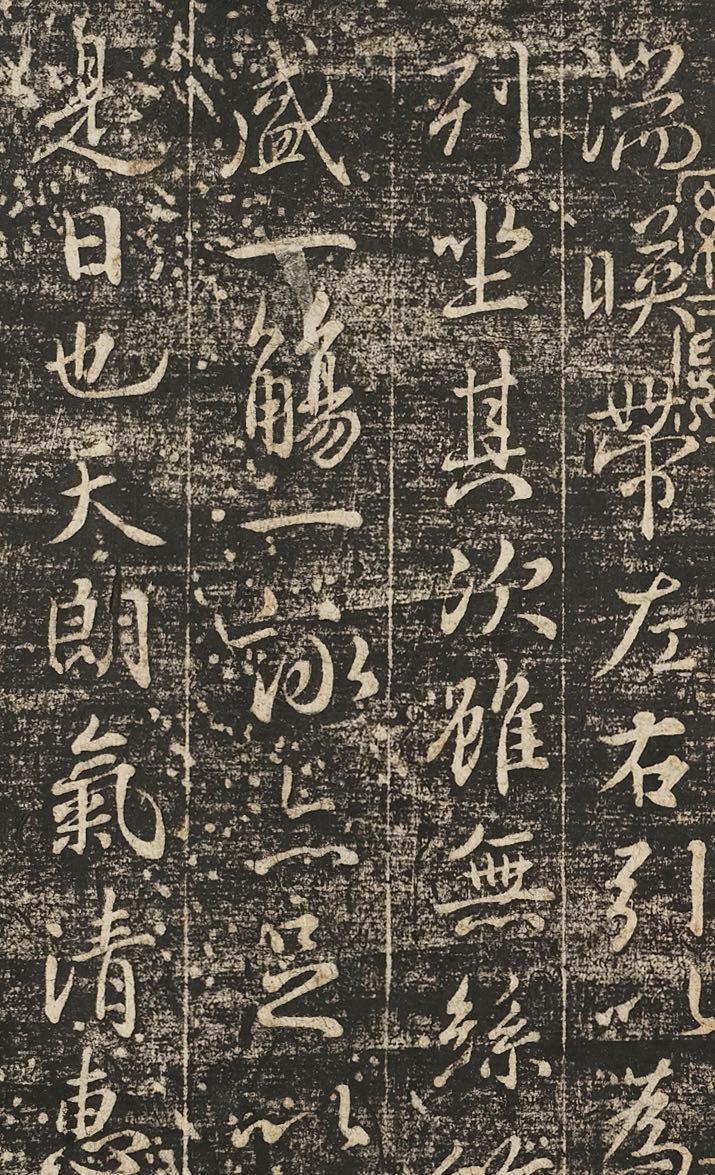 湍暎帶左右引以為
列坐其次雖無絲
盛一觴一詠亦足以
是日也天朗氣清惠